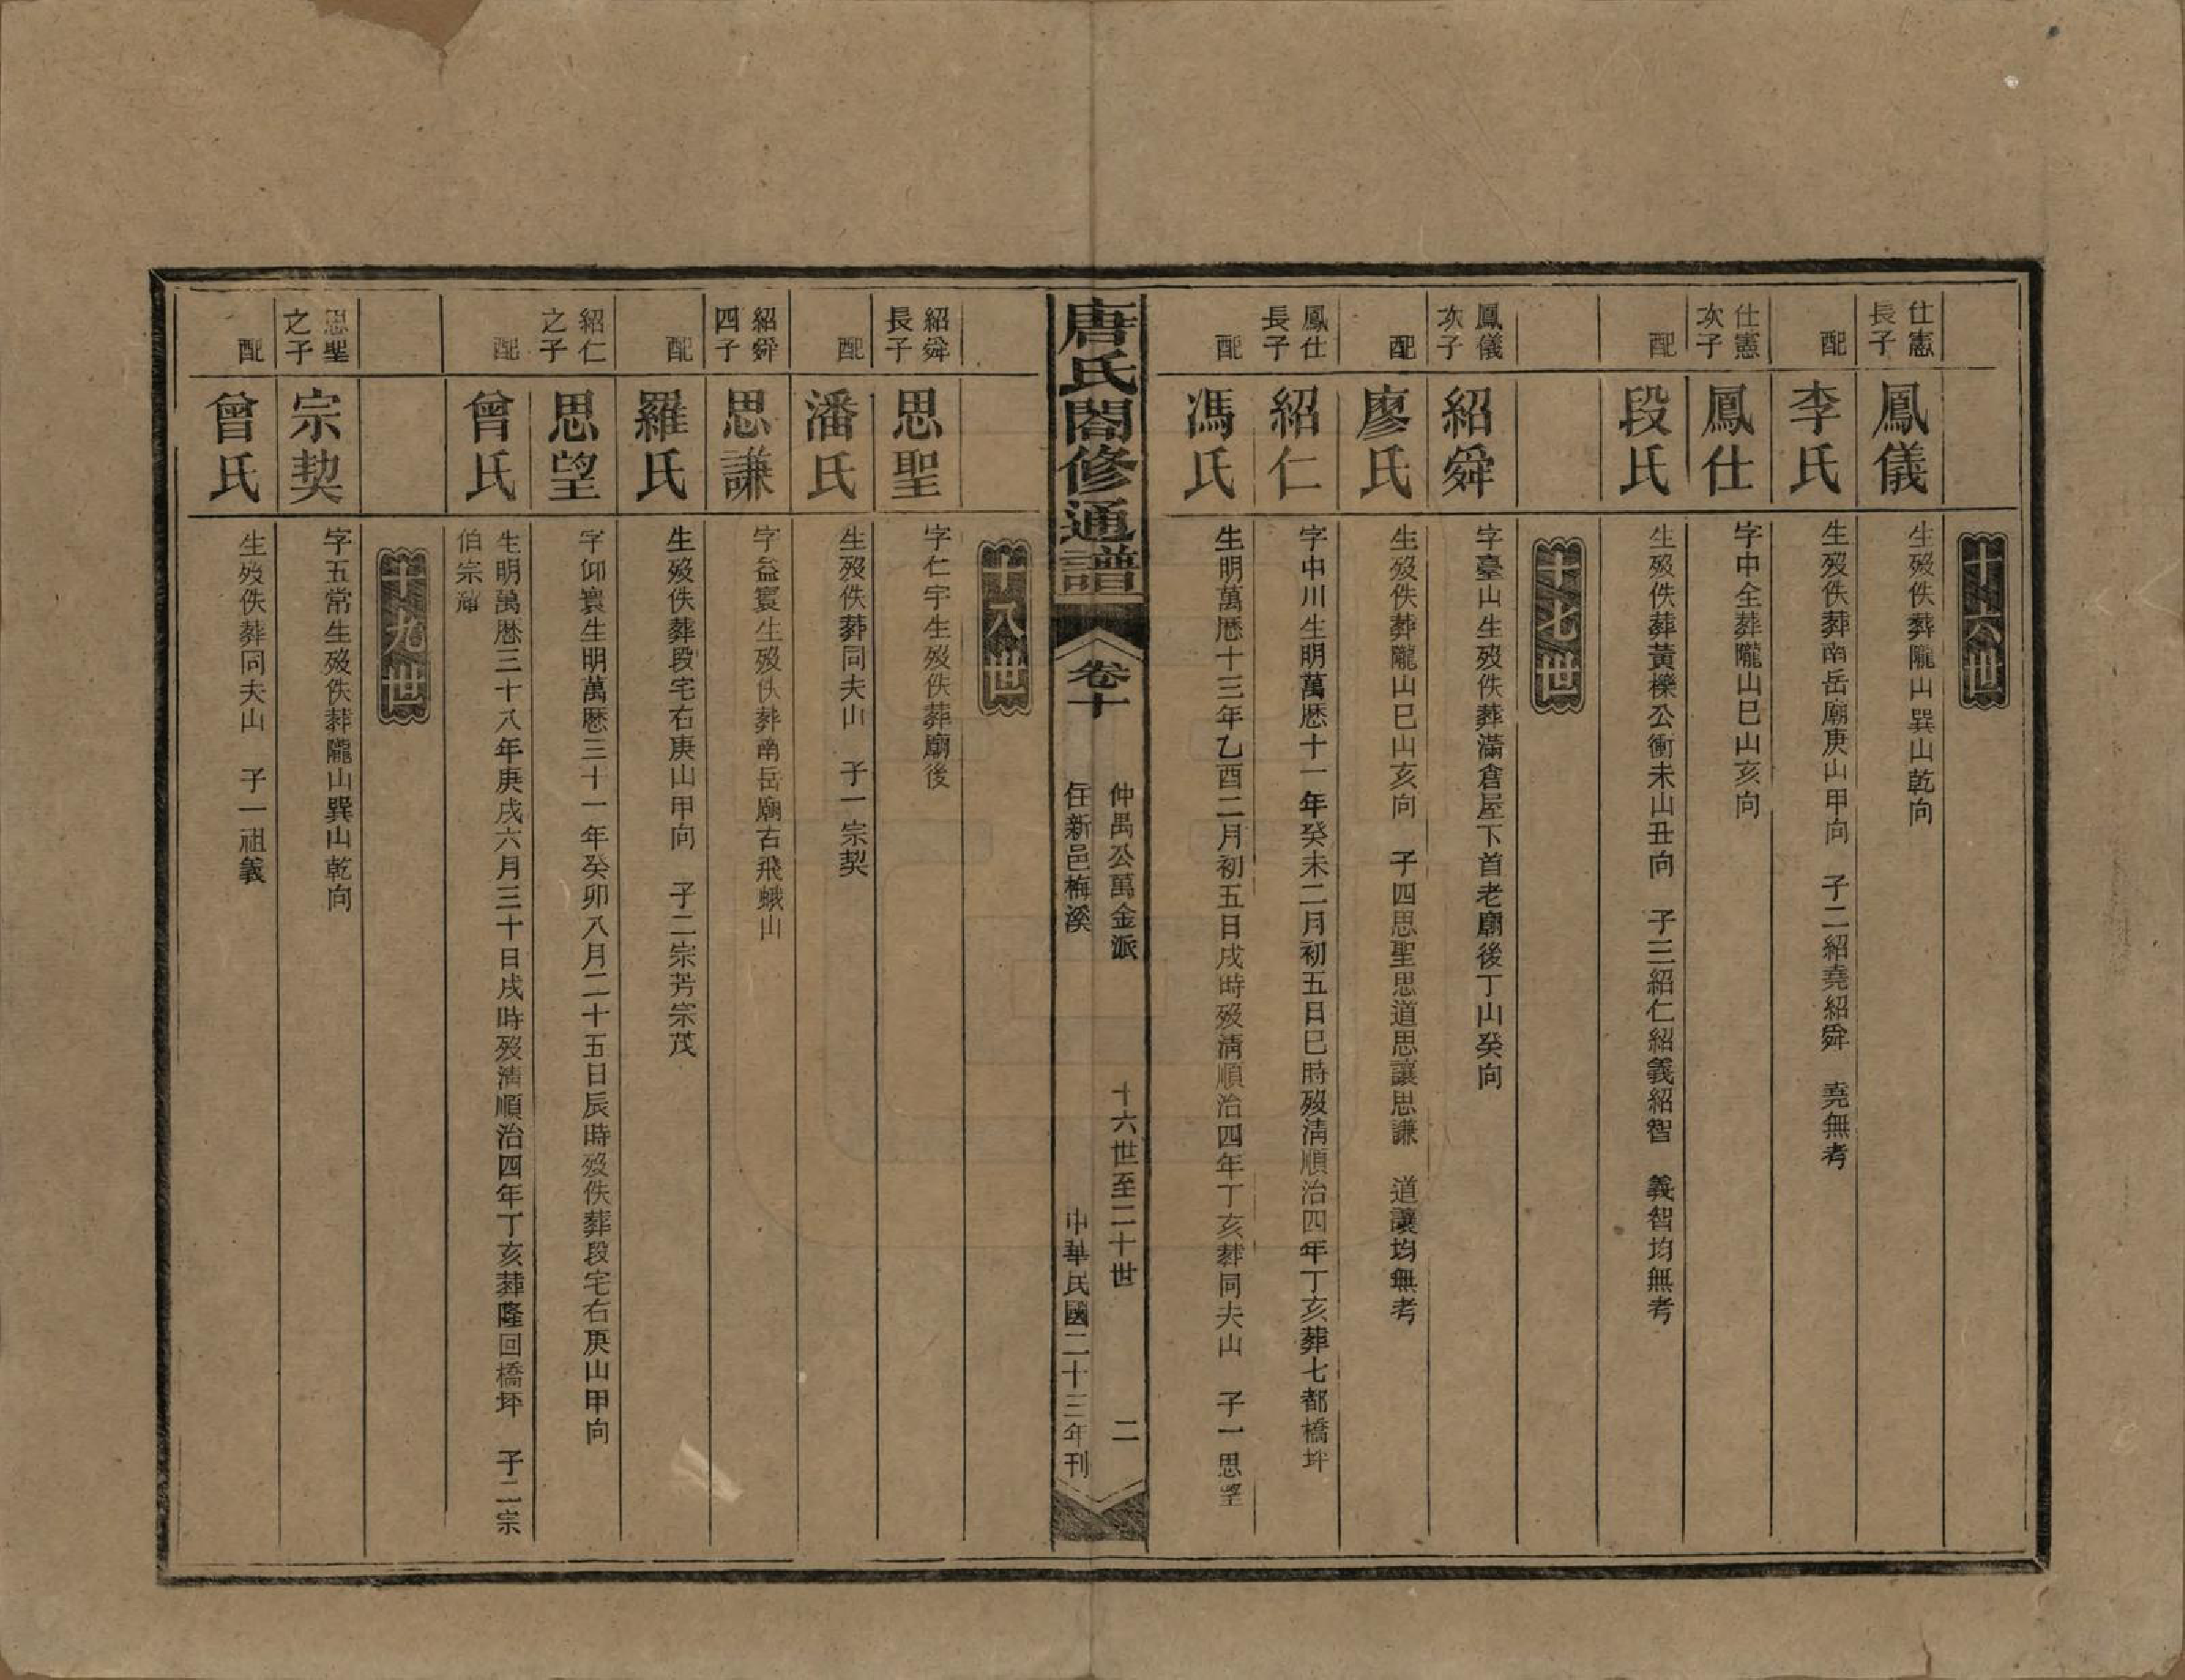 十六世
仕憲長子
鳳儀
生歿佚葬隴山巽山乾向
配
李氏
生歿佚葬南岳廟庚山甲向　子二紹堯紹舜　堯無考
仕憲次子
鳳仕
字中全葬隴山巳山亥向
配
段氏
生歿佚葬黃櫟公衝未山丑向　子三紹仁紹義紹智　義智均無考
十七世
鳳儀次子
紹舜
字臺山生歿佚葬滿倉屋下首老廟後丁山癸向
配
廖氏
生歿佚葬隴山巳山亥向　子四思聖思道思讓思謙　道讓均無考
鳳仕長子
紹仁
字中川生明萬厯十一年癸未二月初五日巳時歿淸順治四年丁亥葬七都橋坪
配
馮氏
生明萬厯十三年乙酉二月初五日戌時歿淸順治四年丁亥葬同夫山　子一思望
唐氏閤修通譜
卷十
仲禺公萬金派
住新邑梅溪
十六世至二十世
二
中華民國二十三年刊
十八世
紹舜長子
思聖
字仁宇生歿佚葬廟後
配
潘氏
生歿佚葬同夫山　子一宗契
紹舜四子
思謙
字益寰生歿佚葬南岳廟右飛蛾山
配
羅氏
生歿佚葬段宅右庚山甲向　子二宗芳宗茂
紹仁之子
思望
字仰寰生明萬厯三十一年癸卯八月二十五日辰時歿佚葬段宅右庚山甲向
配
曾氏
生明萬厯三十八年庚戌六月三十日戌時歿淸順治四年丁亥葬隆回橋坪　子二宗
伯宗
十九世
思聖之子
宗契
字五常生歿佚葬隴山巽山乾向
配
曾氏
生歿佚葬同夫山　子一祖義